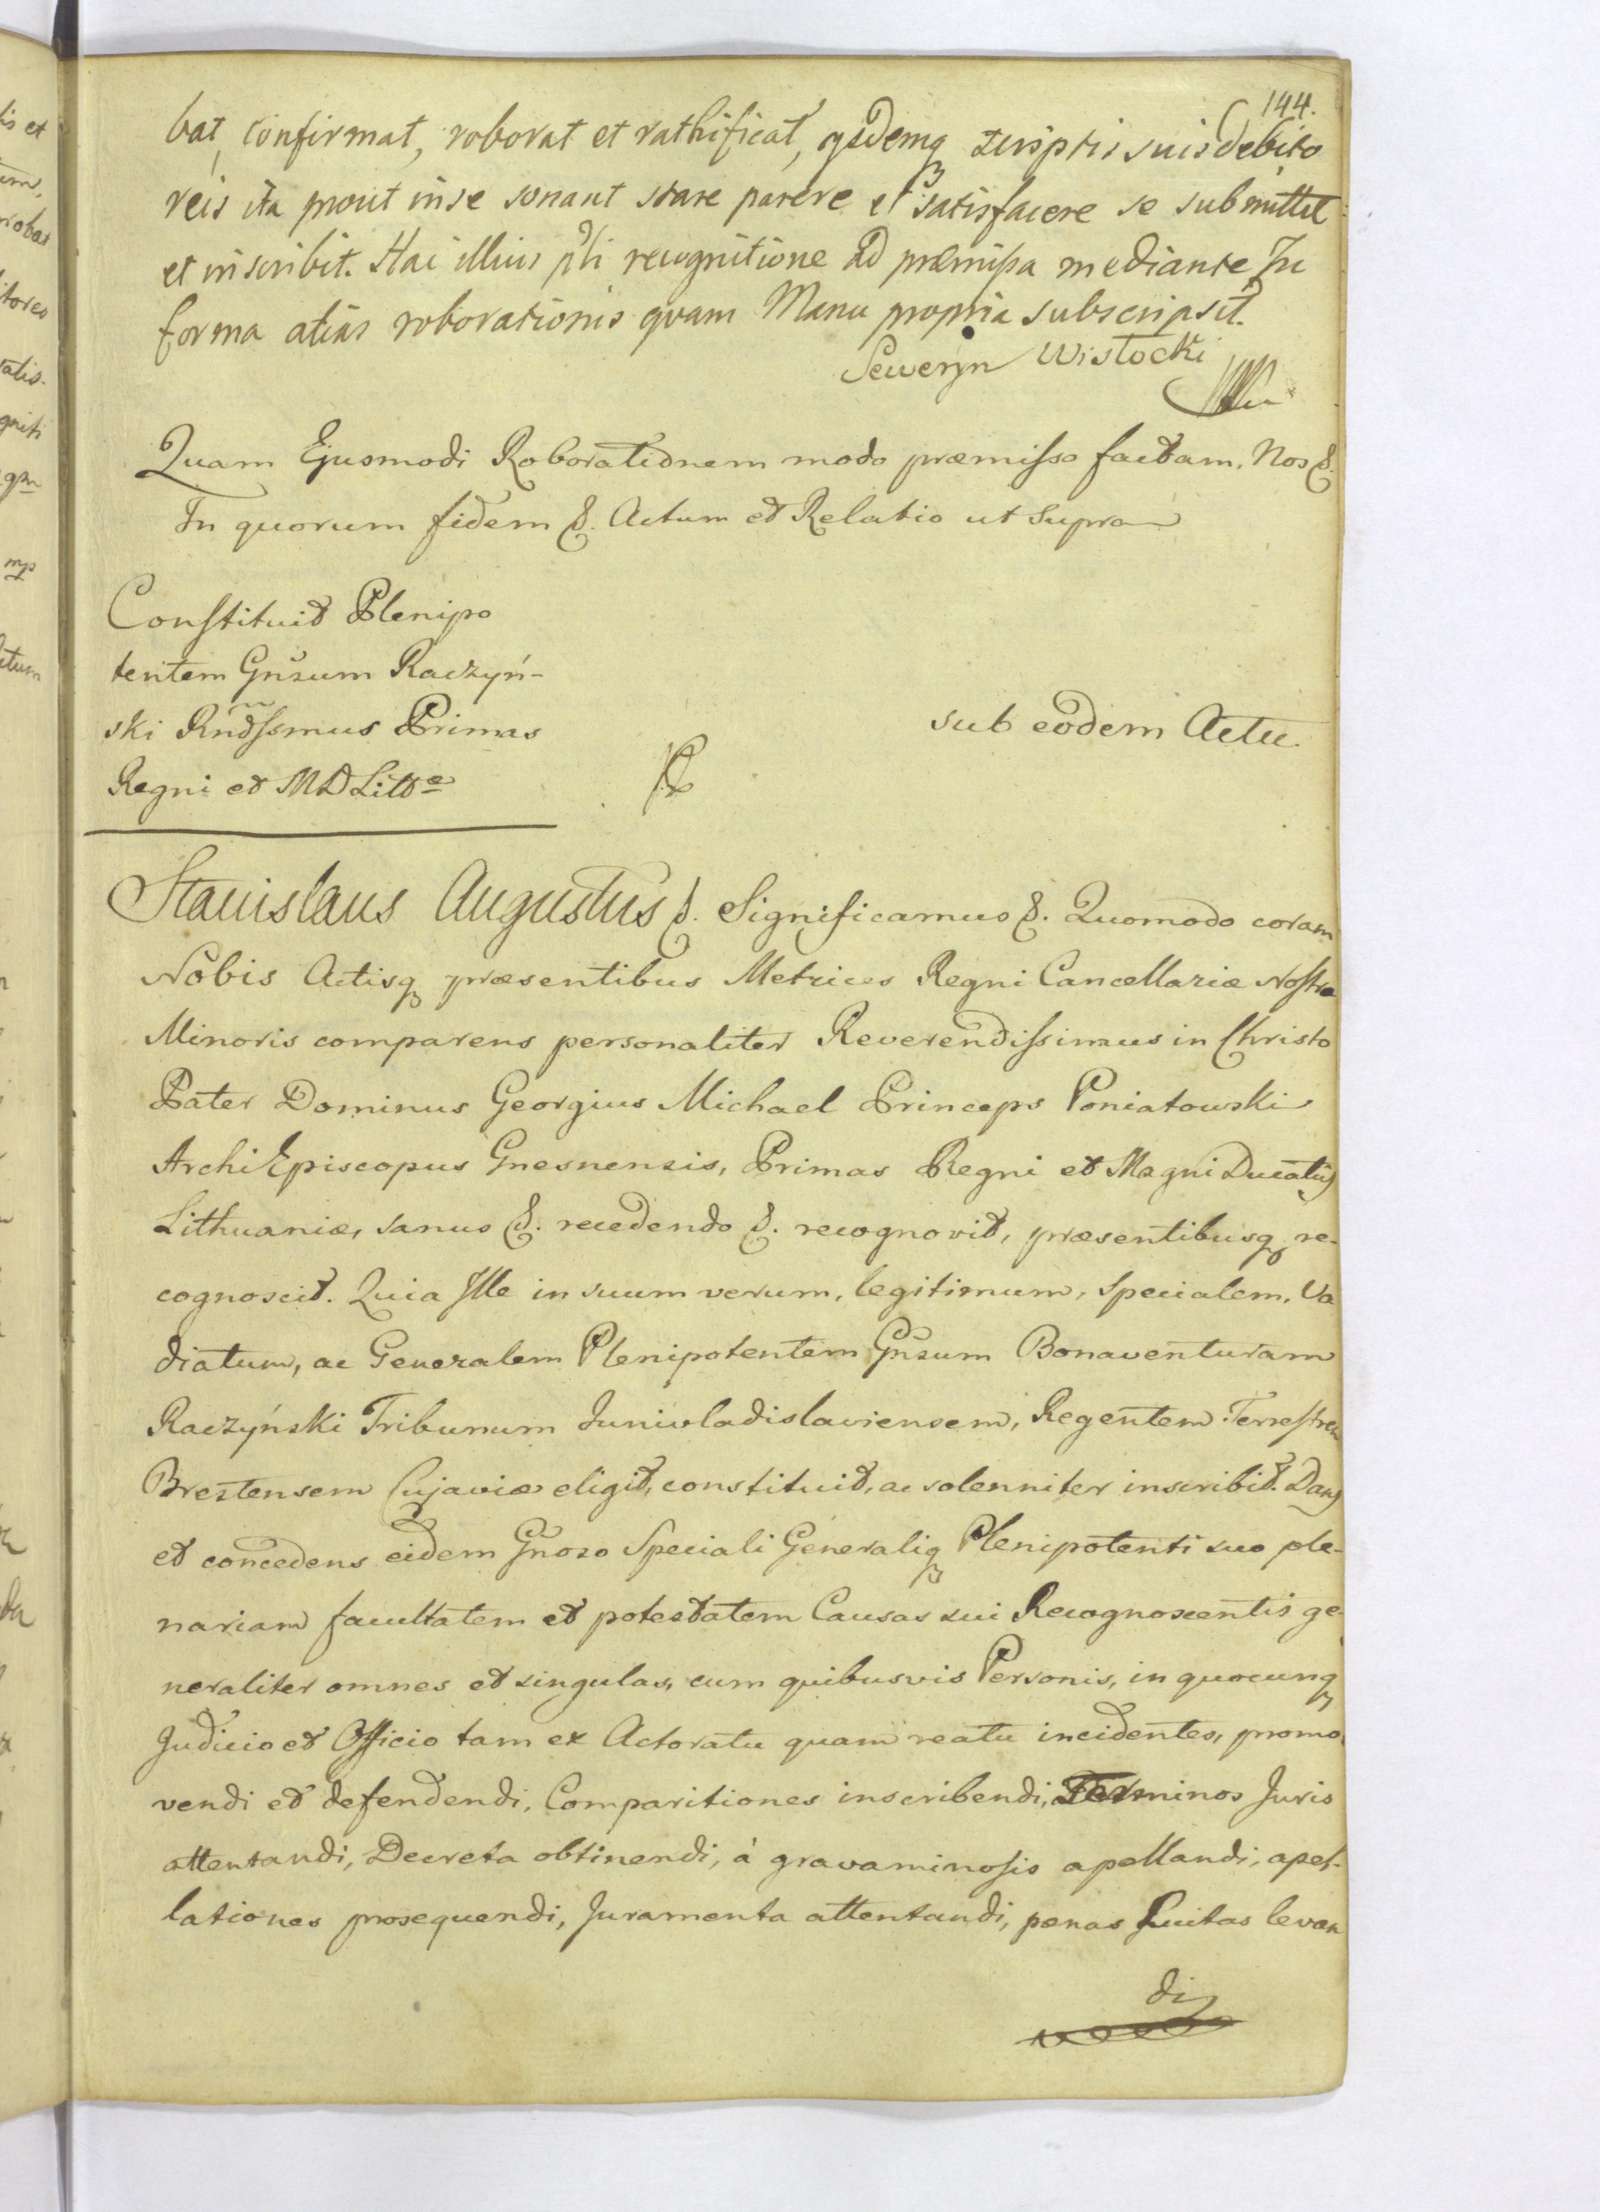 144.
bat, confirmat, roborat et rathificat, ysdemq inscriptis suis debito
reis ita prout in se sonant stare parere et satisfacere se submittit
et inscribit. Hac illius pnti recognitione ad præmissa mediante In
forma atias roborationis quam Manu propria subscripsit.
Seweryn Wisłocki
Quam Ejusmodi Roborationem modo præmisso factam. Nos &.
In quorum fidem &. Actum et Relatio ut Supra
Constituit Plenipo
tentem Gnsum Raczyń-
ski Rndssmus Primas
Regni et MD Litt
sub eodem Actu.
Stanislaus Augustus &. Significamus &. Quomodo coram
Nobis Actisq præsentibus Metrices Regni Cancellariæ Nostræ
Minoris comparens personaliter Reverendissimus in Christo
Pater Dominus Georgius Michael Princeps Poniatowski
Archi Episcopus Gnesnensis, Primas Regni et Magni Ducatus
Lithuaniæ, sanus &. recedendo &. recognovit, præsentibusq re-
cognoscit. Quia Ille in suum verum, legitimum, specialem, Va
diatum, ac Generalem Plenipotentem Gnsum Bonaventuram
Raczyński Tribunum Junivladislaviensem, Regentem Terrestrem
Brestensem Cujaviæ eligit, constituit, ac solenniter inscribit. Dans
et concedens eidem Gnoso Speciali Generaliq Plenipotenti suo ple-
nariam facultatem et potestatem Causas sui Recognoscentis ge-
neraliter omnes et singulas, cum quibusvis Personis, in quocunq
Judicio et Officio tam ex Actoratu quam reatu incidentes, promo
vendi et defendendi, Comparitiones inscribendi, Terminos Juris
attentandi, Decreta obtinendi, à gravaminosis apellandi, apel-
lationes prosequendi, Juramenta attentandi, pænas luitas levan
di